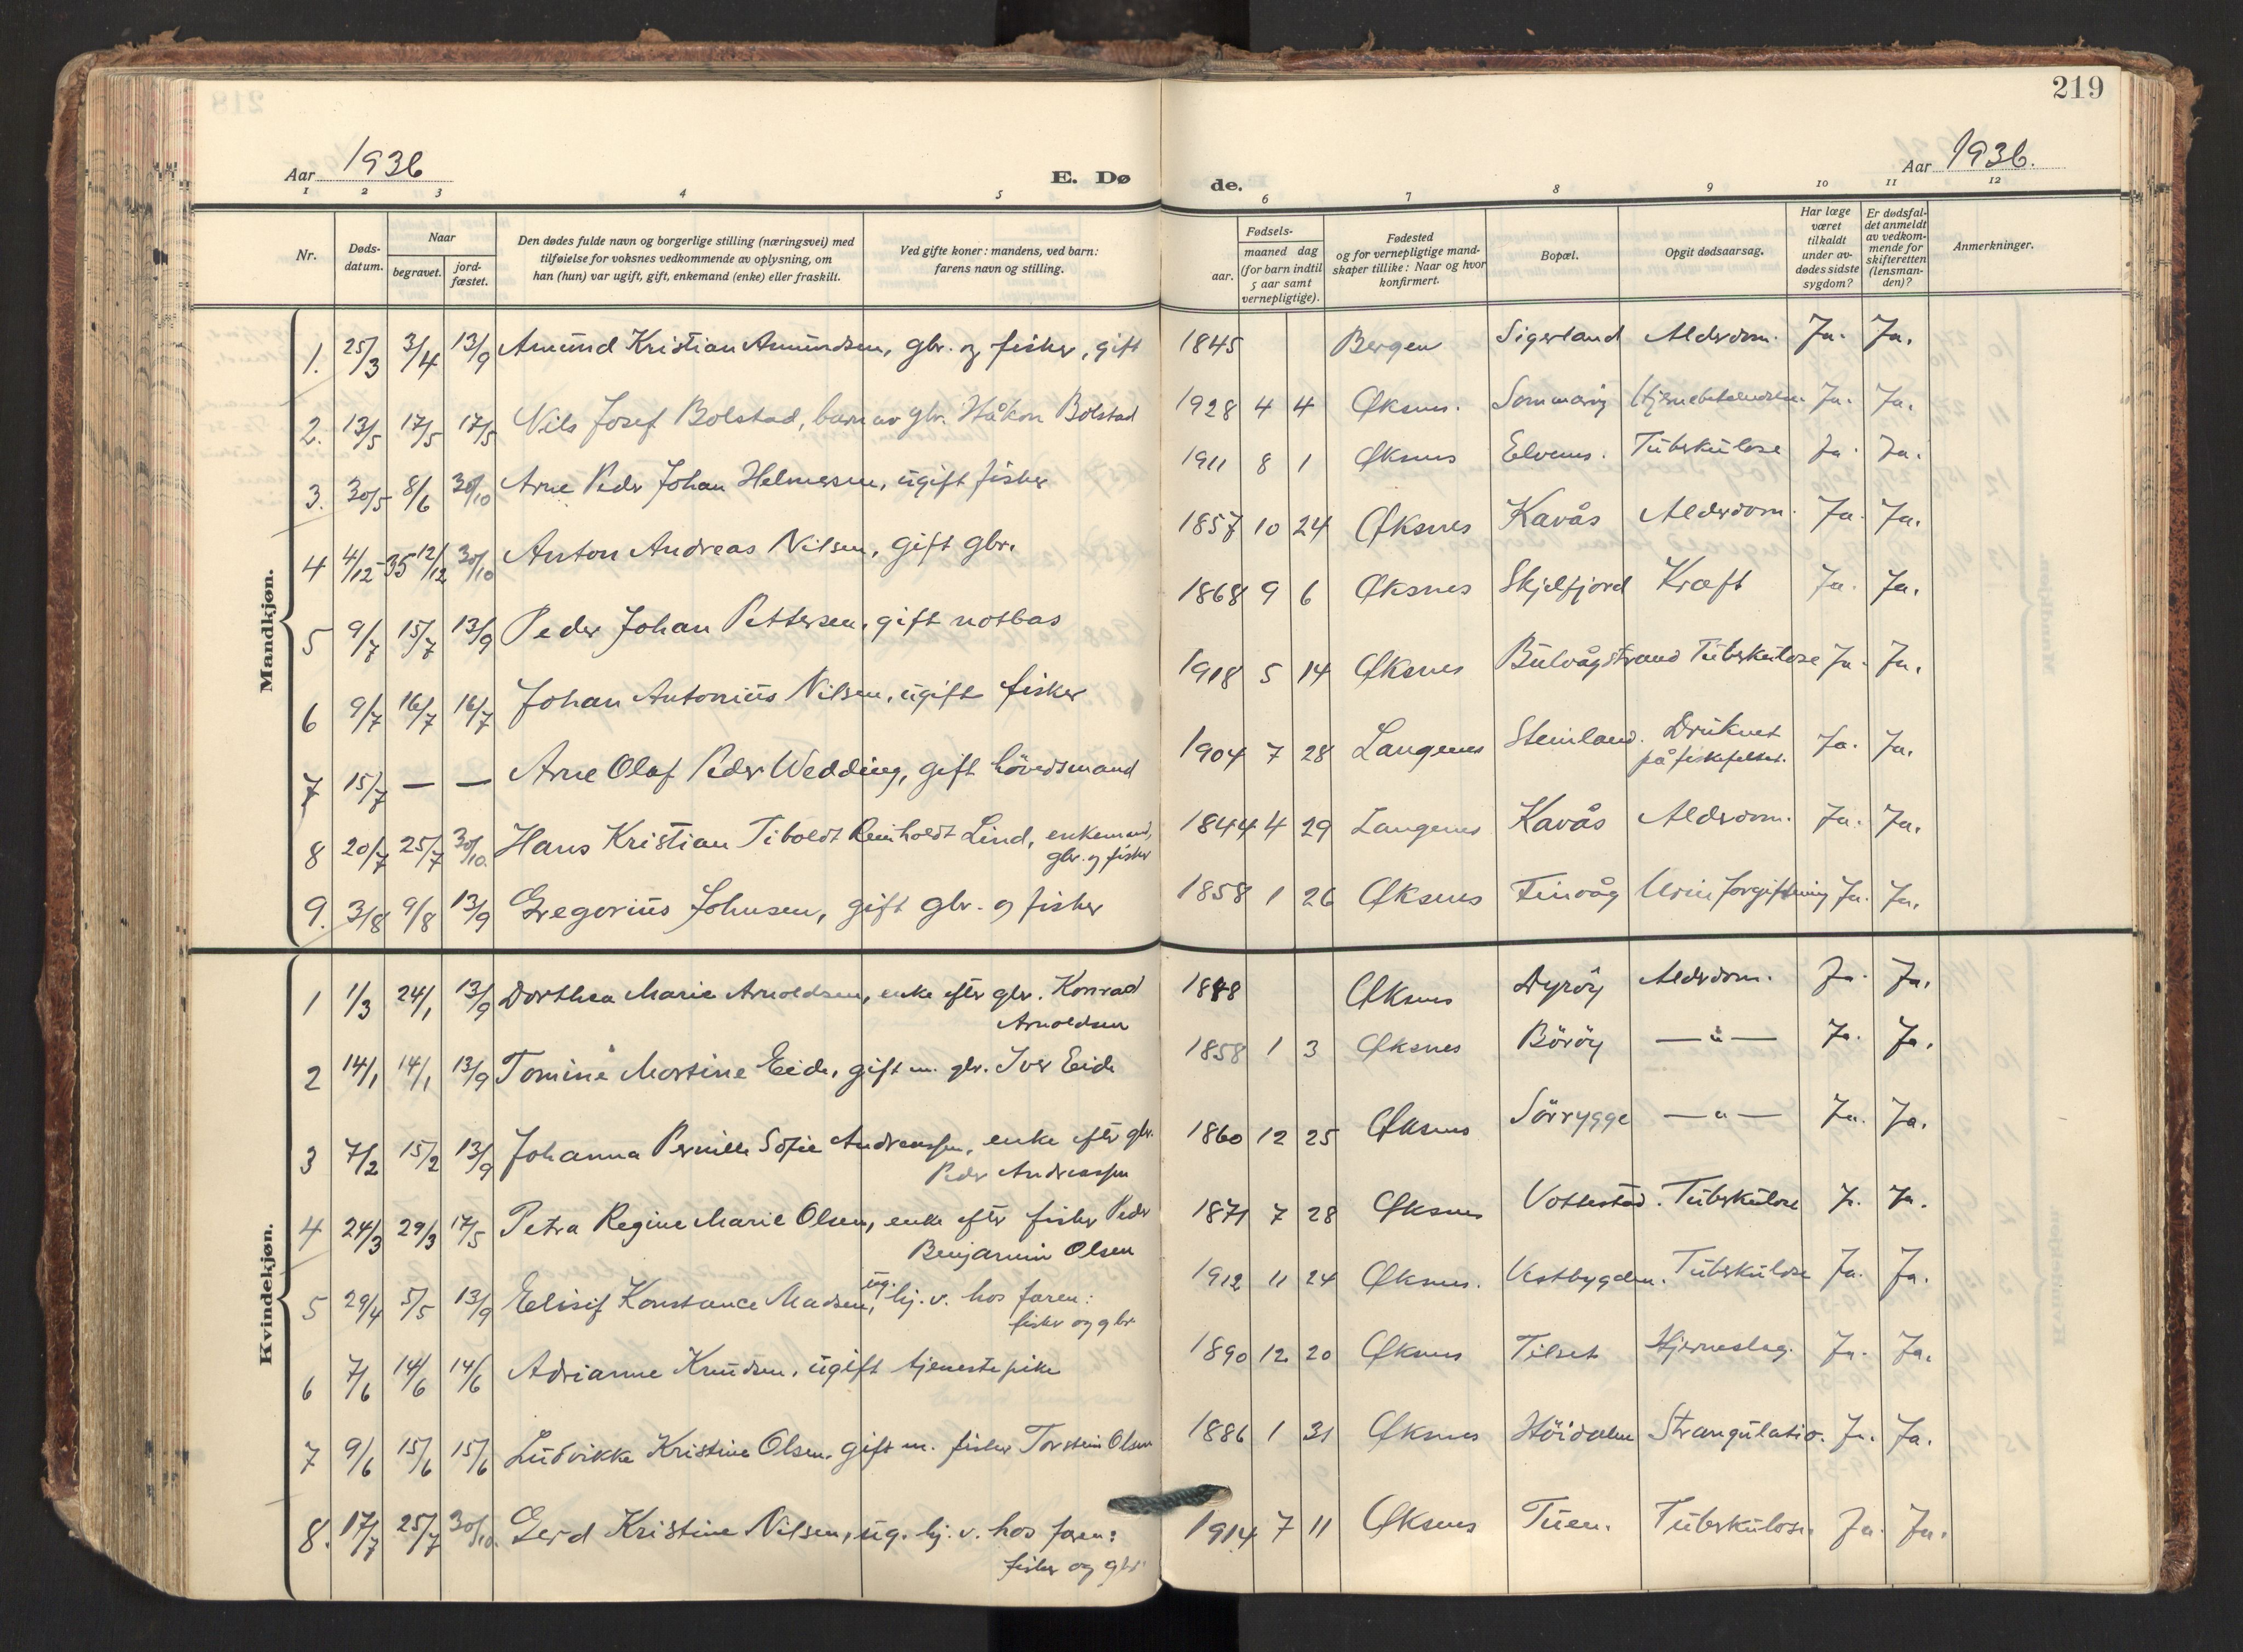 219
Aar 1936
E. Dø
de.
Aar 1936.
1 2 3 4 5 6 7 8 9 10 11 12
Nr.
Døds-
datum.
Naar
begravet.
jord-
fæstet.
Den dødes fulde navn og borgerlige stilling (næringsvei) med
tilføielse for voksnes vedkommende av oplysning, om
han (hun) var ugift, gift, enkemand (enke) eller fraskilt.
Ved gifte koner: mandens, ved barn:
farens navn og stilling.
Fødsels-
aar.
maaned dag
(for barn indtil
5 aar samt
vernepligtige).
Fødested
og for vernepligtige mand-
skaper tillike: Naar og hvor
konfirmert.
Bopæl.
Opgit dødsaarsag.
Har læge
været
tilkaldt
under av-
dødes sidste
sygdom?
Er dødsfal-
det anmeldt
av vedkom-
mende for
skifteretten
(lensman-
den)?
Anmerkninger.
Mandkjøn.
1. 25/3 3/4 13/9 Amund Kristian Amundsen, gbr. og fisker, gift 1845 Bergen Sigerland Alderdom. Ja. Ja.
2. 13/5 17/5 17/5 Nils Josef Bolstad, barn av gbr. Håkon Bolstad 1928 4 4 Øksnes. Sommarøy Hjernebetendelse Ja. Ja.
3. 30/5 8/6 30/10 Arne Peder Johan Helmersen, ugift fisker 1911 8 1 Øksnes Elvenes. Tuberkulose Ja. Ja.
4 4/12-35 12/12 30/10 Anton Andreas Nilsen, gift gbr. 1857 10 24 Øksnes Kavås Alderdom. Ja. Ja.
5 9/7 15/7 13/9 Peder Johan Pettersen, gift notbas 1868 9 6 Øksnes Skjelfjord Kræft Ja. Ja.
6 9/7 16/7 16/7 Johan Antonius Nilsen, ugift fisker 1918 5 14 Øksnes Bulvågstrand Tuberkulose Ja. Ja.
7 15/7 — — Arne Olaf Peder Wedding, gift hövedsmand 1904 7 28 Langenes Steinland. Druknet Ja. Ja.
på fiskefeltet.
8 20/7 25/7 30/10. Hans Kristian Tiboldt Reinholdt Lind, enkemand, 1844 4 29 Langenes Kavås Alderdom. Ja. Ja.
gbr. og fisker
9. 3/8 9/8 13/9 Gregorius Johnsen, gift gbr. og fisker 1858 1 26 Øksnes Finvåg Urinforgiftning Ja. Ja.
Kvindekjøn.
1 1/3 24/1 13/9 Dorthea Marie Arnoldsen, enke efter gbr. Konrad 1848 Øksnes Dyröy Alderdom. Ja. Ja.
Arnoldsen
2 14/1 14/1 13/9 Tomine Martine Eide, gift m. gbr. Iver Eide 1858 1 3 Øksnes Böröy — " — Ja. Ja.
3 7/2 15/2 13/9 Johanna Pernille Sofie Andreassen, enke efter gbr. 1860 12 25 Øksnes Sörrygge — " — Ja. Ja.
Peder Andreassen
4 24/3 29/3 17/5 Petra Regine Marie Olsen, enke efter fisker Peder 1871 7 28 Øksnes Vottestad. Tuberkulose Ja. Ja.
Benjamin Olsen
5 29/4 5/5 13/9 Elisif Konstance Madsen, ug. hj. v. hos faren: 1912 11 24 Øksnes. Vestbygden. Tuberkulose Ja. Ja.
fisker og gbr.
6 7/6 14/6 14/6 Adrianne Knudsen, ugift tjenestepike 1890 12 20 Øksnes Tilset Hjerneslag. Ja. Ja.
7 9/6 15/6 15/6 Ludvikke Kristine Olsen, gift m. fisker Torstein Olsen 1886 1 31 Øksnes Höidalen Strangulatio. Ja. Ja.
8. 17/7 25/7 30/10. Gerd Kristine Nilsen, ug. hj. v. hos faren: 1914 7 11 Øksnes Tuen. Tuberkulose. Ja. Ja.
fisker og gbr.